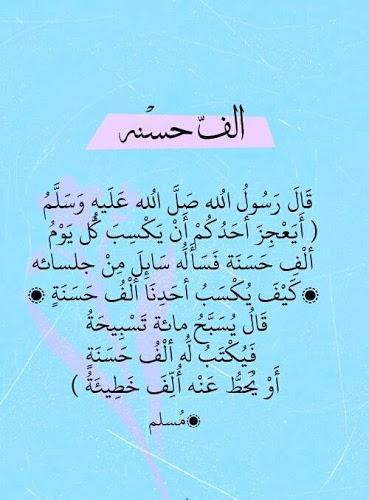 الفّ حسْنه
قَالَ رَسُولُ الله صَلَّ الله عَلَيهِ وَسَلَّمُ
( أَيَعْجِزَ أحَدُكُمْ أَنْ يَكْسِبَ كُل يَوْمُ
ألْفِ حَسَنَة فَسَأَلُه سَايِلَ مِنْ جلسائه
كِيْفَ يُكْسَبُ أحَدِنَا ألْفُ حَسَنَةٍ
قَالُ يُسَبَّحُ مِائة تَسْبِيحةُ
فَيُكْتَبُ لَه ألْفُ حَسَنَةٍ
أَوْ يُحَطُّ عَنْه أُلِّفَ خَطِيئَةُ )
مُسلم